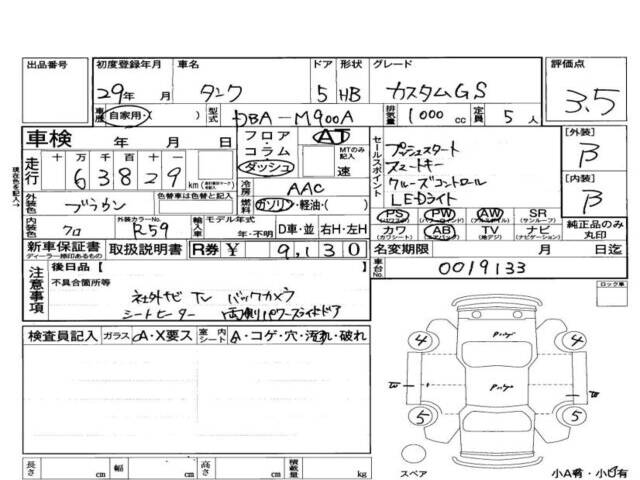 出品番号 初度登録年月 車名 ドア 形状 グレード 評価点
29年 月 タンク 5 HB カスタムGS 3.5
車歴 自家用・( ) 型式 DBA-M900A 排気量 1000 cc 定員 5 人
車検 年 月 日 フロア・コラム・ダッシュ AT MTのみ記入 速 セールスポイント [外装] B
走行 十 万 千 百 十 一 63829 km プッシュスタート
スマートキー
クルーズコントロール
LEDライト
[内装] B
冷房 AAC
現在色を記入→ 外装色 ブラウン 色替車は色替と記入 燃料 ガソリン・軽油・( )
PS PW AW SR 純正品のみ丸印
(パワステ) (パワーウィンドウ) (アルミホイル) (サンルーフ)
内装色 クロ 外装カラーNo. R59 輸入車 モデル年式 年・不明 D車・並 右H・左H
カワ AB TV ナビ
(カワシート) (エアバック) (地デジ) (ナビゲーション)
新車保証書 取扱説明書 R券 ¥ 9,130 名変期限 月 日迄
ディーラー捺印あるもの
車台No. 0019133
注意事項 後日品 [ ]
不具合箇所等
社外ナビ TV バックカメラ
シートヒーター 両側パワースライドドア
ロック車
検査員記入 ガラス A・X要ス 室内シート A・コゲ・穴・汚れ・破れ
4 4
5 5
W W
スペア
小A有・小U有
長さ cm 幅 cm 高さ cm 積載量 kg